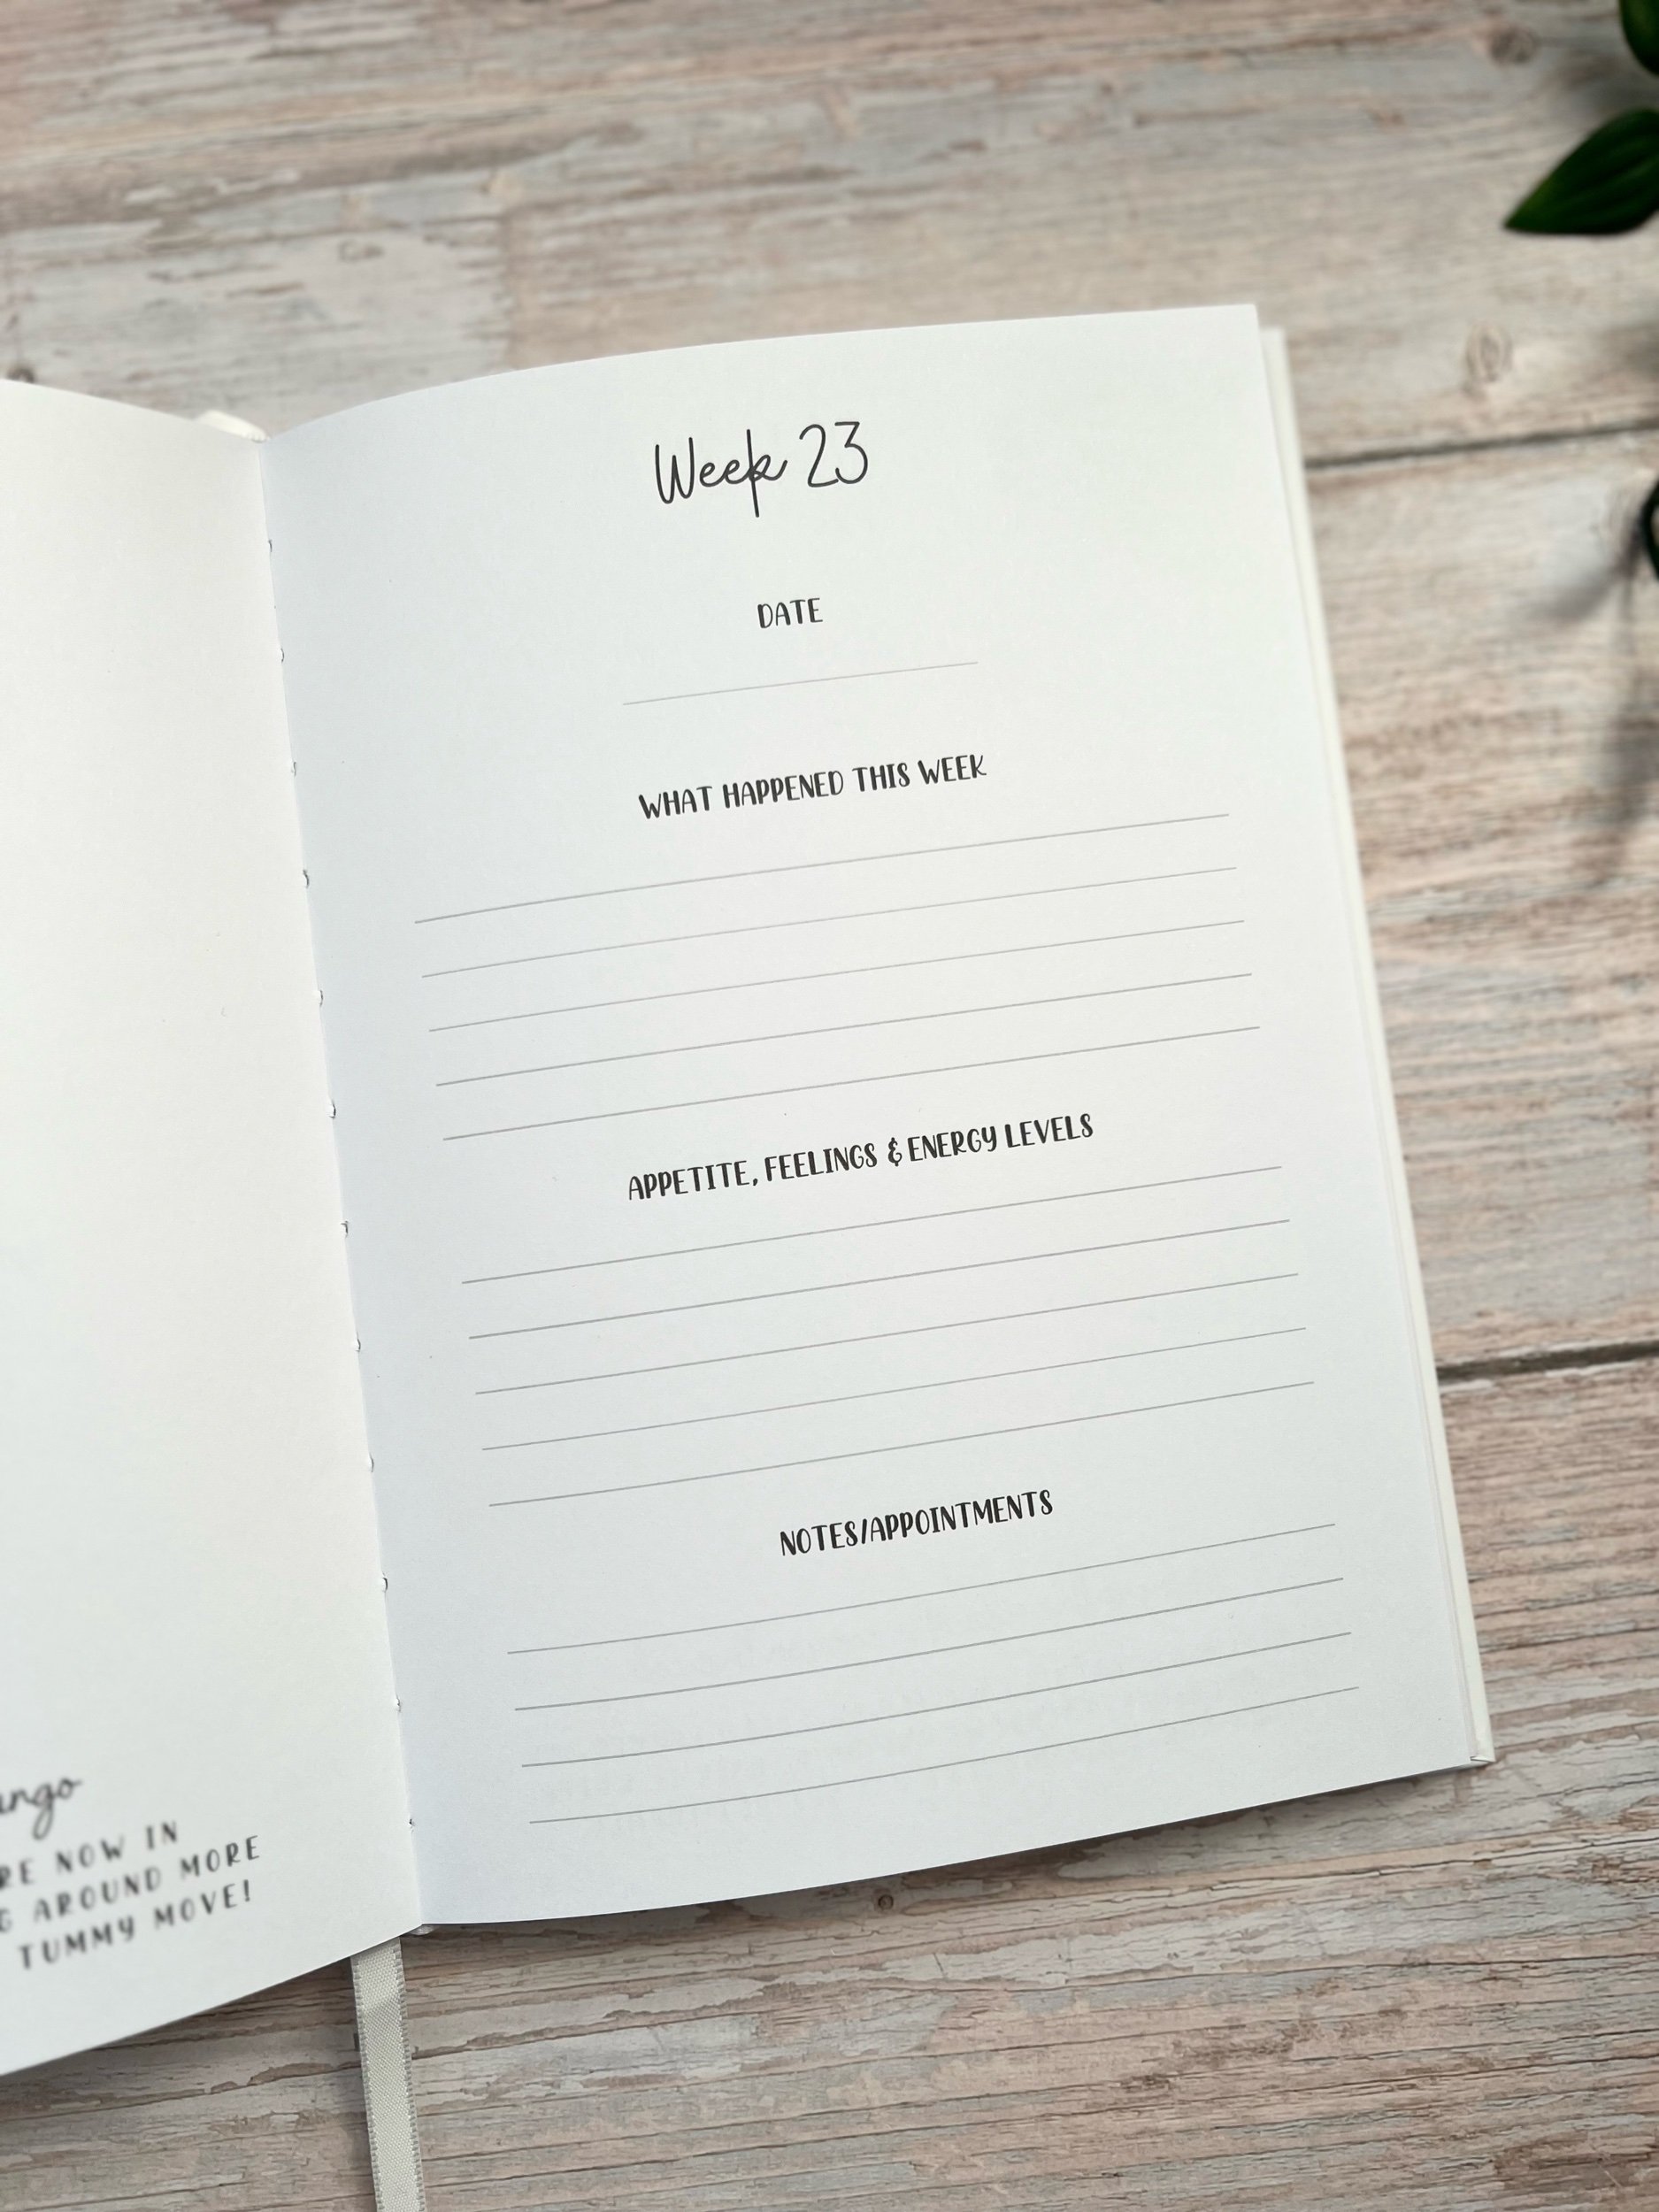 NOW IN
AROUND MORE
TUMMY MOVE!
Week 23
DATE
WHAT HAPPENED THIS WEEK
APPETITE, FEELINGS & ENERGY LEVELS
NOTES/APPOINTMENTS